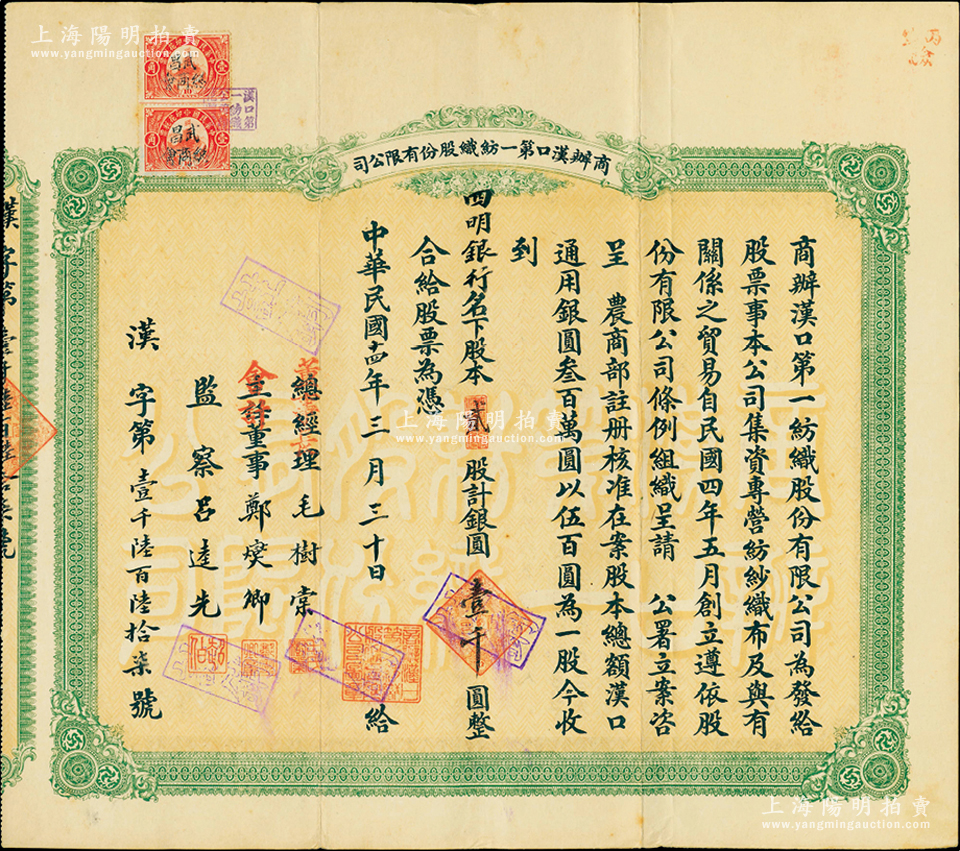 上海陽明拍賣
www.yangmingauction.com
武昌
總商會
武昌
總商會
漢口第
一紡織
商辦漢口第一紡織股份有限公司
商辦漢口第一紡織股份有限公司為發給
股票事本公司集資專營紡紗織布及與有
關係之貿易自民國四年五月創立遵依股
份有限公司條例組織呈請 公署立案咨
呈 農商部註册核准在案股本總額漢口
通用銀圓叁百萬圓以伍百圓為一股今收
到
四明銀行名下股本 貳 股計銀圓 壹千 圓整
合給股票為憑
中華民國十四年三月三十日 給
總經理 毛樹棠
主任董事 鄭燮卿
監察 呂逵先
漢字第壹千陸百陸拾柒號
上海陽明拍賣
www.yangmingauction.com
上海陽明拍賣
www.yangmingauction.com